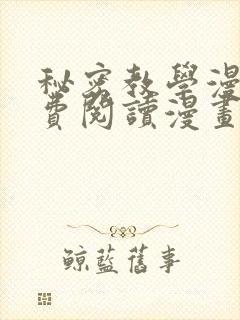 秘密教學漫
費閱讀漫畫
鯨藍舊事